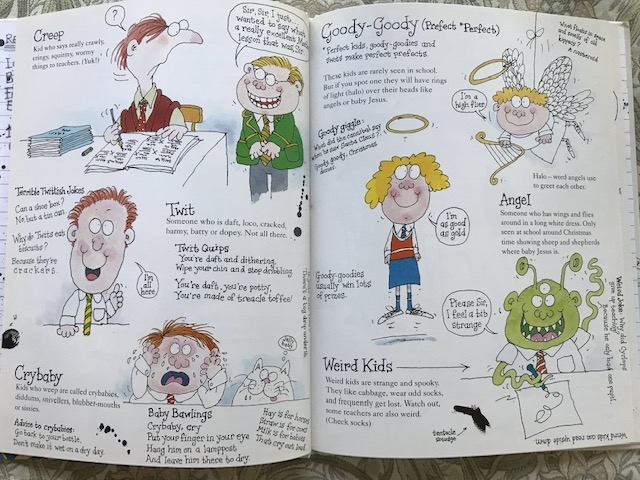 Creep
Kid who says really crawly,
cringy, squirmy, wormy
things to teachers. (Yuk!)
?
Sir, Sir I just
wanted to say what
a really excellent
lesson that was Sir
Terrible Twittish Jokes
Can a shoe box?
No but a tin can.
Why do Twits eat
biscuits?
Because they're
crackers.
I'm
all
here
Twit
Someone who is daft, loco, cracked,
barmy, batty or dopey. Not all there.
Twit Quips
You're daft and dithering,
Wipe your chin and stop dribbling.
You're daft, you're potty,
You're made of treacle toffee!
There's a big drip underneath
Crybaby
Kids who weep are called crybabies,
diddums, snivellers, blubber-mouths
or sissies.
Advice to crybabies:
Go back to your bottle.
Don't make it wet on a dry day.
Baby Bawlings
Crybaby, cry
Put your finger in your eye
Hang him on a lamppost
And leave him there to dry.
Hay is for horses
Straw is for cows
Milk is for babies
That cry out loud
Goody-Goody (Prefect *Perfect)
*Perfect kids, goody-goodies and
swots make perfect prefects.
These kids are rarely seen in school.
But if you spot one they will have rings
of light (halo) over their heads like
angels or baby Jesus.
Goody giggle:
What did the cannibal say
when he saw Santa Claus?
Goody, goody, Christmas
dinner
What floats in space
and smells of old
kippers?
A
I'm a
high flier
Halo – word angels use
to greet each other.
Angel
Someone who has wings and flies
around in a long white dress. Only
seen at school around Christmas
time showing sheep and shepherds
where baby Jesus is.
I'm
as good
as gold
Goody-goodies
usually win lots
of prizes.
Please Sir,
I feel a bit
strange
Weird Joke: Why did Cyclops
give up teaching?
Because he only had one pupil.
Weird Kids
Weird kids are strange and spooky.
They like cabbage, wear odd socks,
and frequently get lost. Watch out,
some teachers are also weird.
(Check socks)
tentacle
smudge
Weird kids can read upside down.